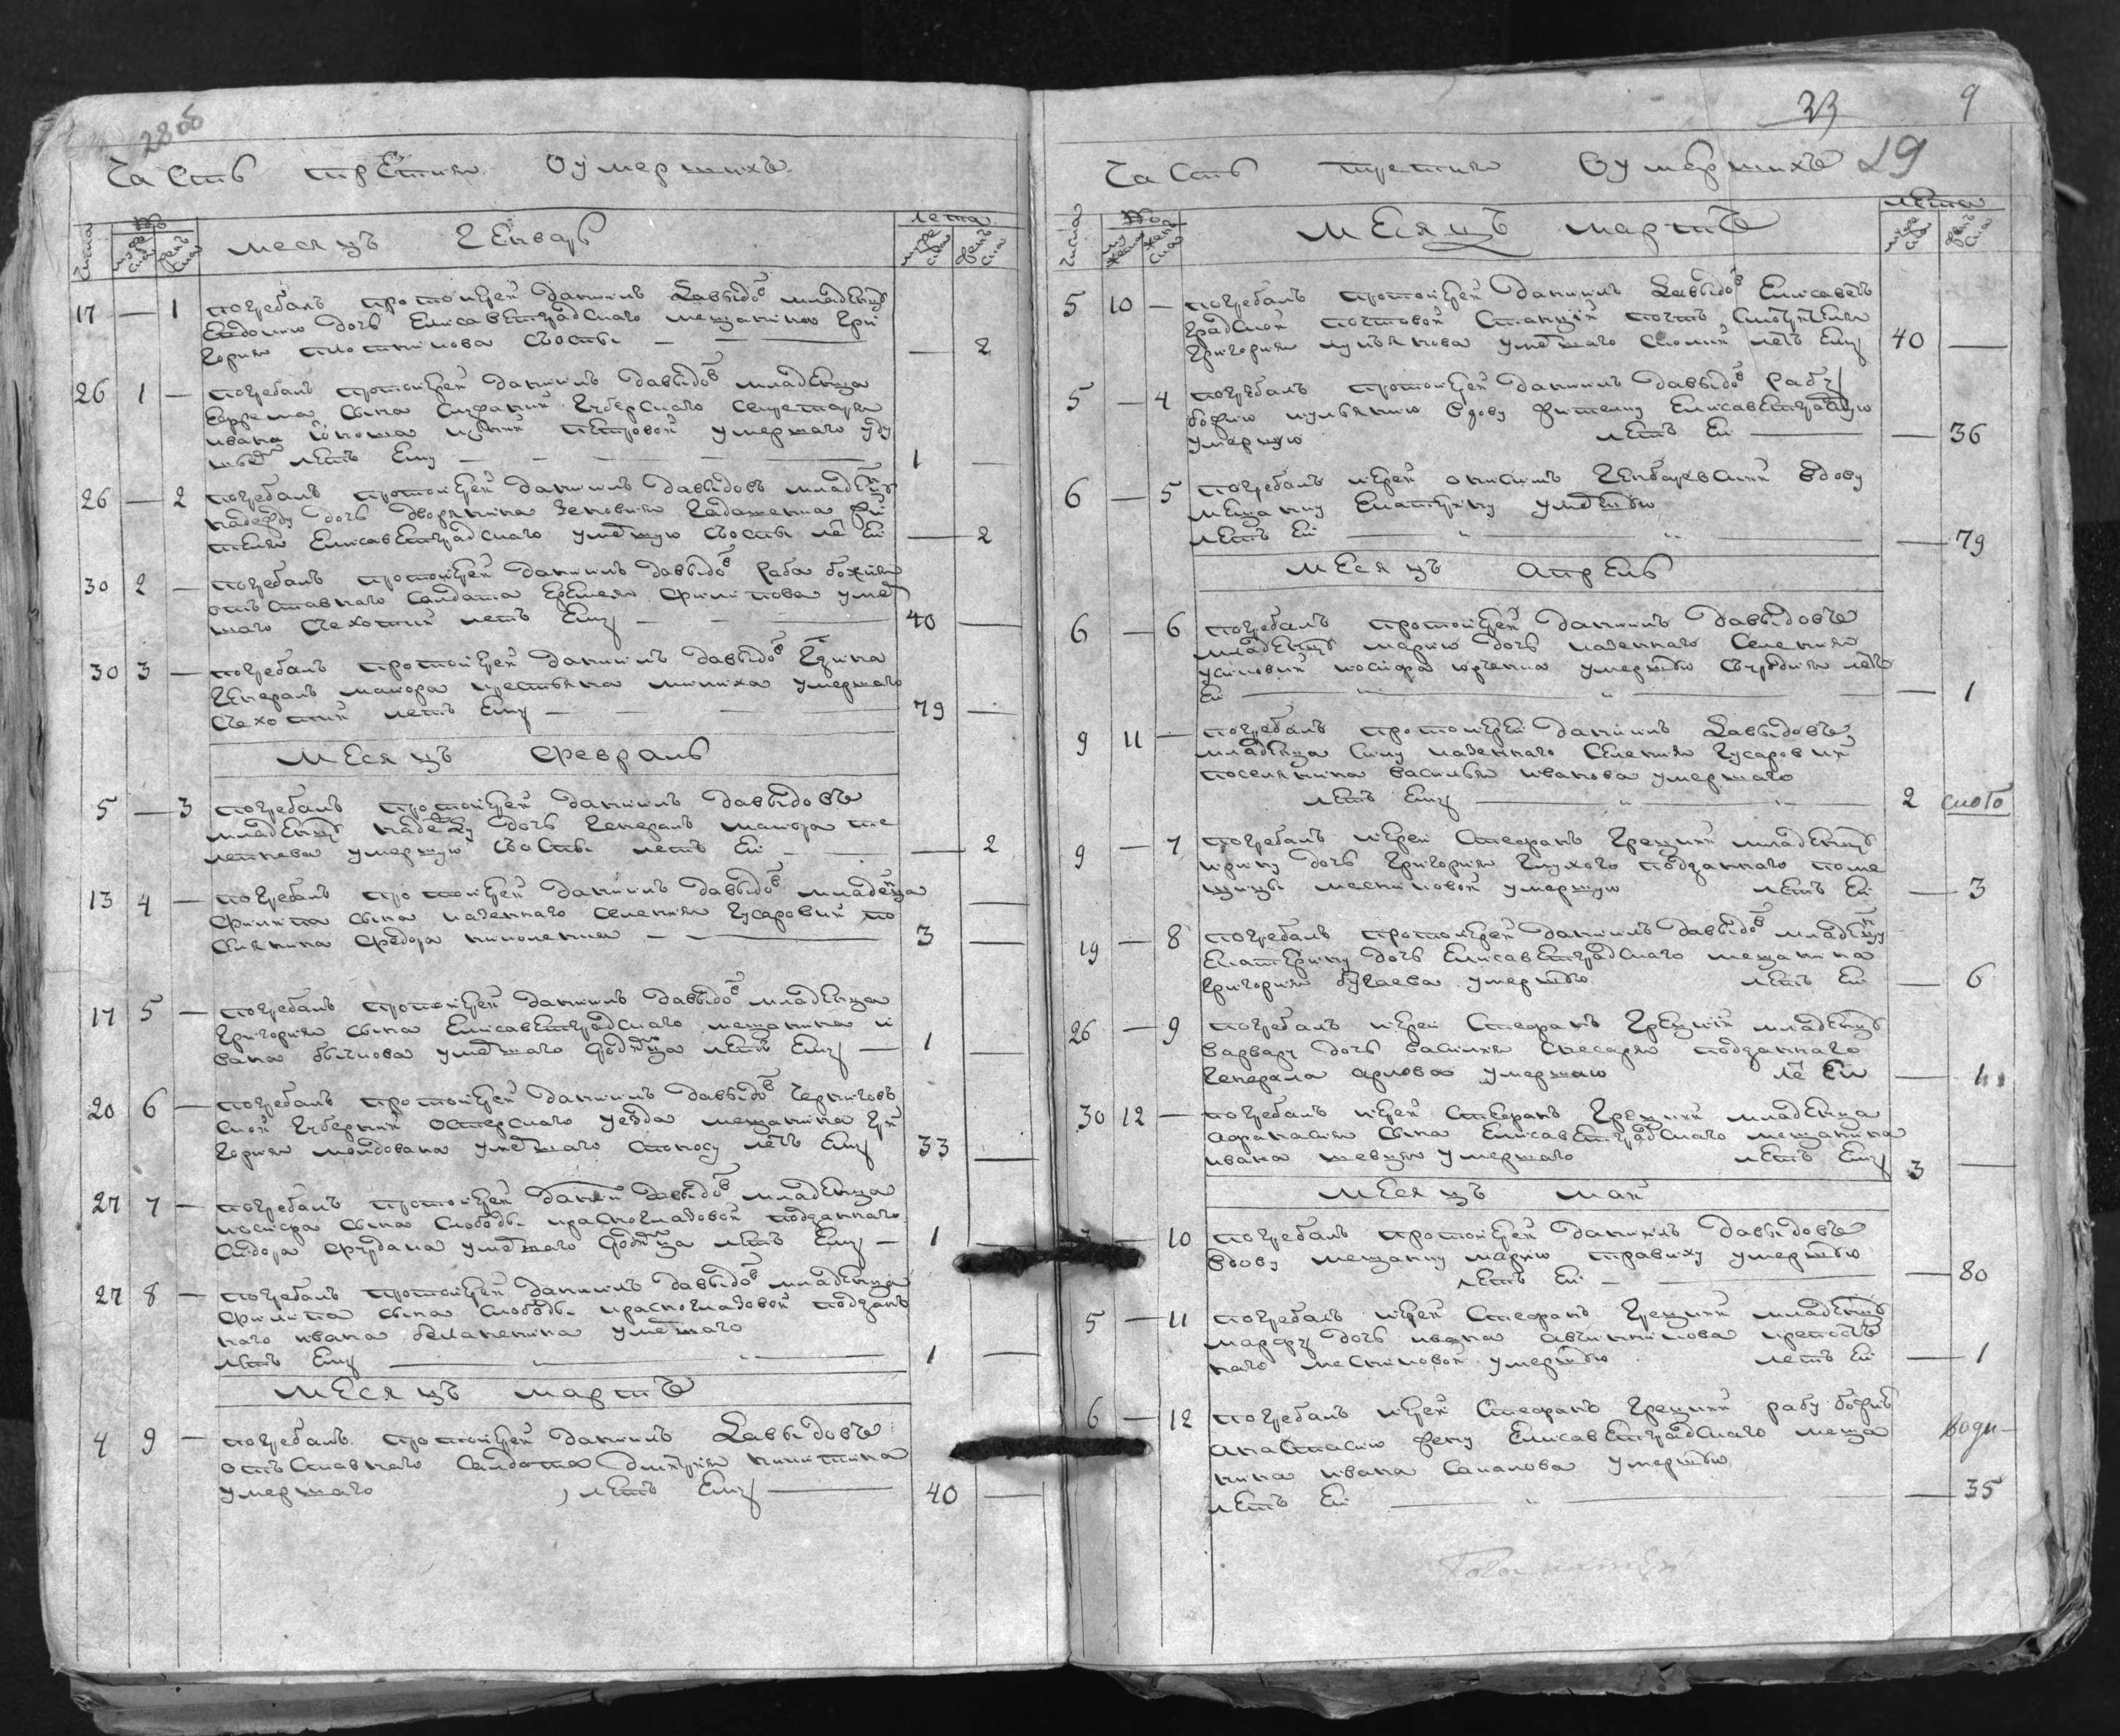 28 об
Часть третия Оумершихъ
числа
№
мужеска
женска
месяцъ Генварь
лета
мужеска
женска
17 — 1 погребалъ протоиерей Даниилъ Давыдов младенца
Евдокию дочь Елисаветградскаго мещанина Гри
гория плотникова Съоспы — — — 2
26 1 — погребалъ протоиерей Даниилъ Давыдов младенца
Ефрема сына Губерскаго Секретаря
ивана петровой умершаго
летъ Ему — — — 1 —
26 — 2 погребалъ протоиерей Даниилъ Давыдовъ младенца
надежду дочь дворянина Зеновия жи
теля Елисаветградскаго умершую Съоспы ле Ей — 2
30 2 — погребалъ протоиерей Даниилъ Давыдов раба божия
отъставнаго Салдата Еремея Филипова умер
шаго Счехотки летъ Ему — — 40 —
30 3 — погребалъ протоиерей Даниилъ Давыдов
Генералъ маиора крестьяна миниха умершаго
Счехотки летъ Ему — — — 79 —
Месяцъ Февраль
5 — 3 погребалъ протоиерей Даниилъ Давыдовъ
младенца надежду дочь Генералъ маиора пле
летнева умершую Съоспы летъ Ей — — 2
13 4 — погребалъ протоиерей Даниилъ Давыдов младенца
Филипа сына казеннаго селения Гусаровки по
селянина Федора николенка — — 3 —
17 5 — погребалъ протоиерей Даниилъ Давыдов младенца
Григория сына Елисаветградскаго мещанина и
вана бычкова умершаго родимца летъ Ему — 1 —
20 6 — погребалъ протоиерей Даниилъ Давыдов Черниговъ
ской Губернии Остерскаго уезда мещанина Гри
гория молдована умершаго Споносу летъ Ему 33 —
27 7 — погребалъ протоиерей Дании Давыдов младенца
иосифа сына слободы красноглазовой подданаго
Сидора умершаго родимца летъ Ему — 1 —
27 8 — погребалъ протоиерей Даниилъ Давыдов младенца
Филипа сына слободы красноглазовой поддан
наго ивана умершаго
летъ Ему — — — 1 —
Месяцъ Мартъ
4 9 — погребалъ протоиерей Даниилъ Давыдовъ
отъставнаго Салдата дмитрия никитина
умершаго , летъ Ему — 40 —
33
9
29
Часть третия Оумершихъ
числа
№
мужеска
женска
Месяцъ мартъ
лета
мужеска
женска
5 10 — погребалъ протоиерей Даниилъ Давыдов Елисаветъ
градской почтовой Станции почтъ
Григория лукьянова умершаго летъ Ему 40 —
5 — 4 погребалъ протоиерей Даниилъ Давыдов рабу
божию вдову жителку Елисаветградскую
умершую летъ Ей — — 36
6 — 5 погребалъ иерей онисимъ Генбачевский вдову
мещанку Екатерину умершую
летъ Ей — — — 79
Месяцъ Апрель
6 — 6 погребалъ протоиерей Даниилъ Давыдовъ
младенца марию дочь казеннаго селения
усиновки иосифа юрченка умершую летъ
Ей — — — 1
9 11 — погребалъ протоиерей Даниилъ Давыдовъ
младенца казеннаго селения Гусаровки
поселянина василья иванова умершаго
летъ Ему — — — 2
9 — 7 погребалъ иерей Стефанъ Грецкий младенца
ирину дочь Григория глухого подданнаго поме
щицы месниковой умершую летъ Ей — 3
19 — 8 погребалъ протоиерей Даниилъ Давыдов младенцу
Екатерину дочь Елисаветградскаго мещанина
Григория бугаева умершую летъ Ей — 6
26 — 9 погребалъ иерей Стефанъ Грецкий младенца
варвару дочь василия слесаря подданнаго
Генерала арлова умершаю ле Ей —
30 12 — погребалъ иерей Стефанъ Грецкий младенца
афанасия сына Елисаветградскаго мещанина
ивана шевця умершаго летъ Ему 3 —
Месяцъ май
— 10 погребалъ протоиерей Даниилъ Давыдовъ
вдову мещанку марию правиху умершую
летъ Ей — — 80
5 — 11 погребалъ иерей Стефанъ Грецкий младенца
марфу дочь ивана авчинникова крепост
наго месниковой умершую летъ Ей — 1
6 — 12 погребалъ иерей Стефанъ Грецкий рабу божию
анастасию жену Елисаветградскаго меща
нина ивана Сакалова умершую
летъ Ей — — — 35